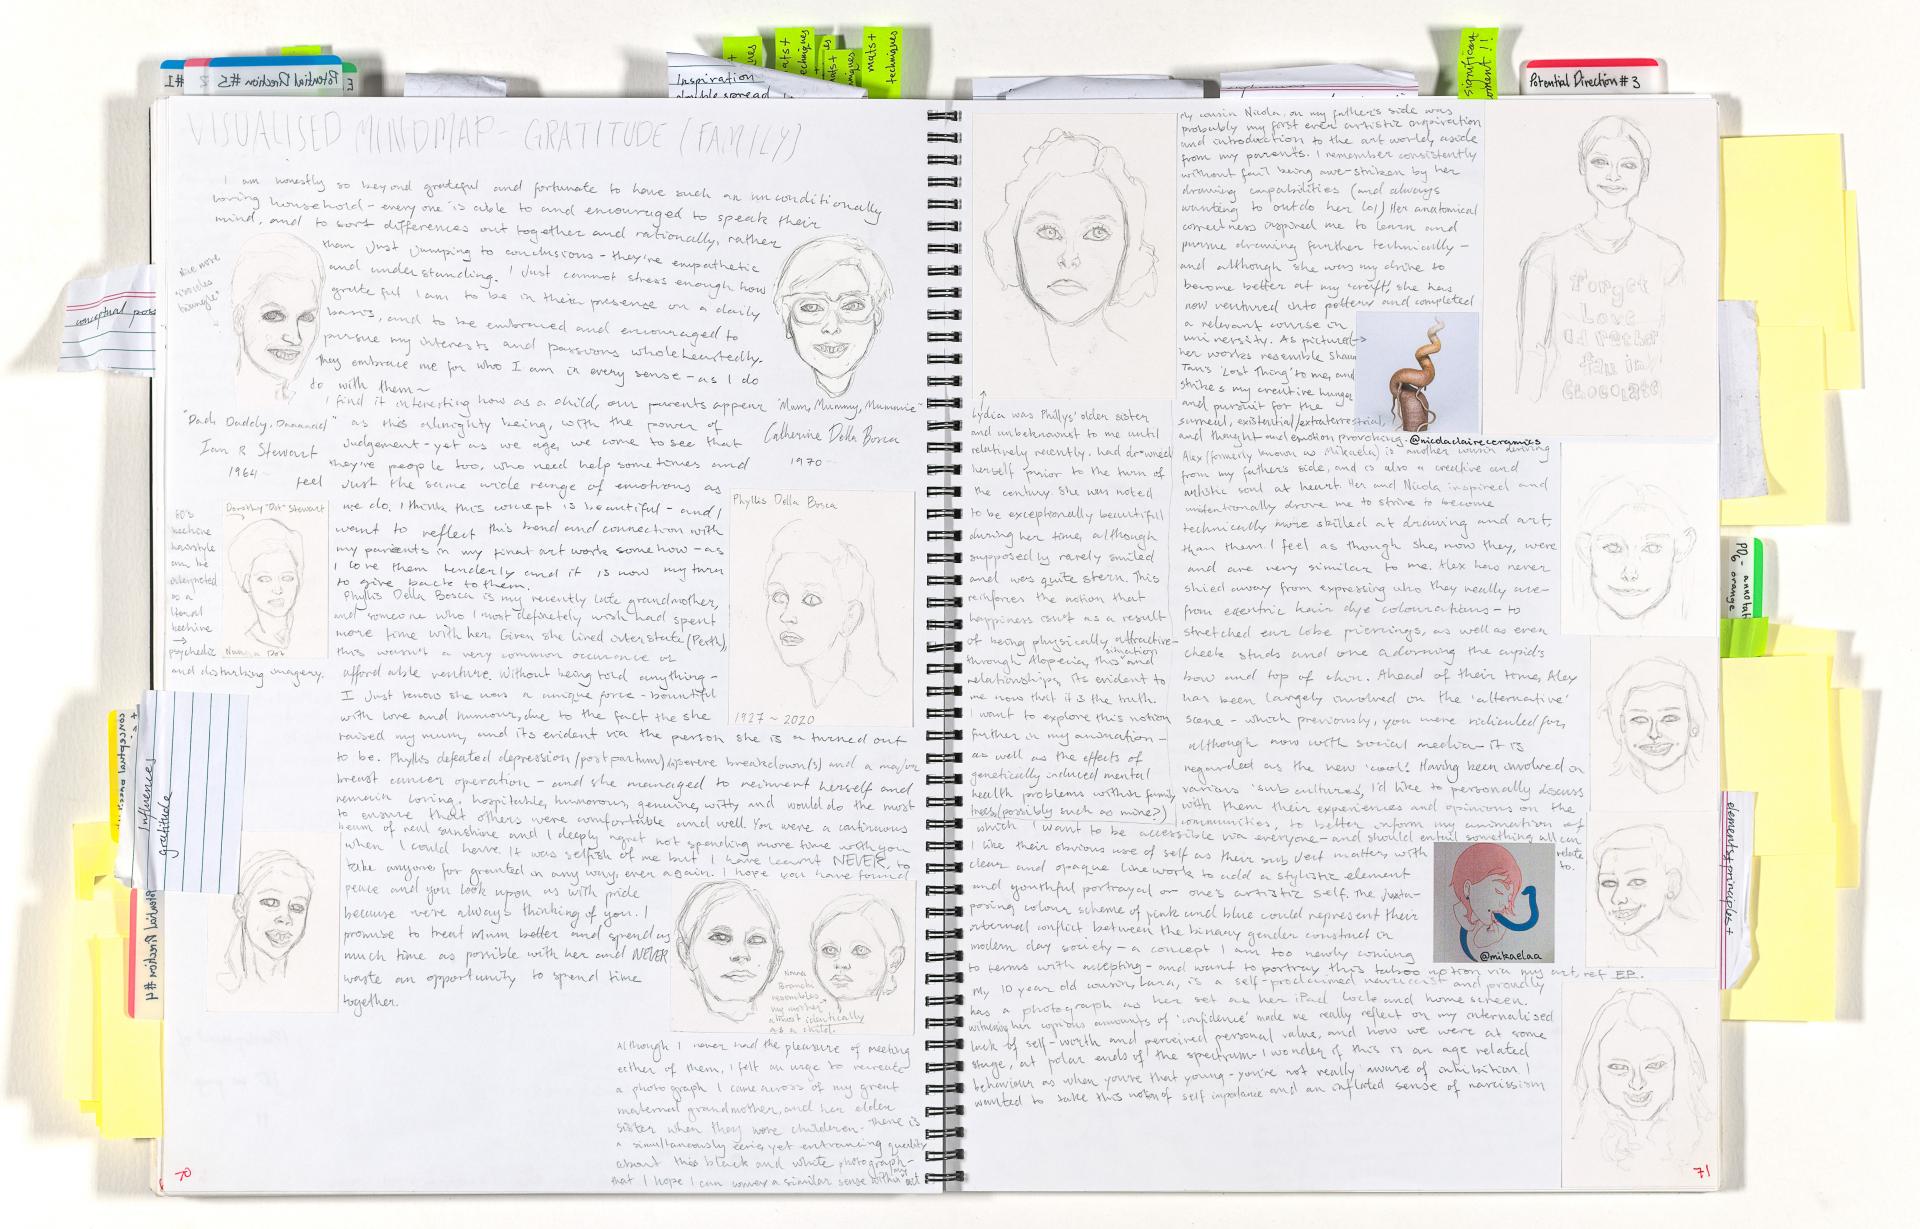 Potential Direction #5
#1
Inspiration
double spread
mats+
techniques
significant
moment!!
Potential Direction #3
VISUALISED MINDMAP - GRATITUDE (FAMILY)
I am honestly so beyond grateful and fortunate to have such an unconditionally
loving household - everyone is able to and encouraged to speak their
mind, and to sort differences out together and rationally, rather
than just jumping to conclusions - they're empathetic
and understanding. I just cannot stress enough how
grateful I am to be in their presence on a daily
basis, and to be embraced and encouraged to
pursue my interests and passions wholeheartedly.
They embrace me for who I am in every sense - as I do
do with them ~
I find it interesting how as a child, our parents appear
as this almighty being, with the power of
judgement - yet as we age, we come to see that
they're people too, who need help sometimes and
feel just the same wide range of emotions as
we do. I think this concept is beautiful - and I
want to reflect this bond and connection with
my parents in my final artwork somehow - as
I love them tenderly and it is now my turn
to give back to them.
Nice more
"isosceles
triangle"
conceptual poss
"Dad, Daddy,
Ian R Stewart
1964 -
"Mum, Mummy, Mummie"
Catherine Della Bosca
1970 -
60's
beehive
hairstyle
can be
interpreted
as a
literal
beehive
→
psychedic
and disturbing imagery.
Dorothy "Dot" Stewart
Nanna Dot
Phyllis Della Bosca
1927 ~ 2020
Phyllis Della Bosca is my recently late grandmother,
and someone who I most definetely wish had spent
more time with her. Given she lived interstate (Perth),
this wasn't a very common occurance or
affordable venture. Without being told anything -
I just know she was a unique force - bountiful
with love and humour, due to the fact the she
raised my mum, and its evident via the person she is a turned out
to be. Phyllis defeated depression/postpartum, severe breakdown(s) and a major
breast cancer operation - and she managed to reinvent herself and
remain loving, hospitable, humorous, genuine, witty and would do the most
to ensure that others were comfortable and well. You were a continuous
beam of real sunshine and I deeply regret not spending more time with you
when I could have. It was selfish of me but I have learnt NEVER to
take anyone for granted in any way, ever again. I hope you have found
peace and you look upon us with pride
because we're always thinking of you. I
promise to treat Mum better and spend as
much time as possible with her and NEVER
waste an opportunity to spend time
together.
Influences
gratitude
Potential Direction #4
Nonna
Branchi
resembles
my mother
almost identically
as a child.
Although I never had the pleasure of meeting
either of them, I felt an urge to recreate
a photograph I came across of my great
maternal grandmother, and her elder
sister when they were childeren. There is
a simultaneously eerie, yet entrancing quality
about this black and white photograph -
that I hope I can convey a similar sense within my art
70
Lydia was Phillys' older sister
and unbeknownst to me until
relatively recently, had drowned
herself prior to the turn of
the century. She was noted
to be exceptionally beautiful
during her time, although
supposedly rarely smiled
and was quite stern. This
reinforces the notion that
happiness isn't as a result
of being physically attractive -
through Alopecia, this situation and
relationships, its evident to
me now that it is the truth.
I want to explore this notion
further in my animation -
as well as the effects of
genetically induced mental
health problems within family
trees (possibly such as mine?)
My cousin Nicola, on my father's side was
probably my first ever artistic inspiration
and introduction to the art world, aside
from my parents. I remember consistently
without fail being awe-striken by her
drawing capabilities (and always
wanting to outdo her lol) Her anatomical
correctness inspired me to learn and
pursue drawing further technically -
and although she was my drive to
become better at my 'craft', she has
now ventured into pottery and completed
a relevant course in
university. As pictured →
her works resemble Shaun
Tan's 'Lost Thing' to me, and
strikes my creative hunger
and pursuit for the
surreal, existential/extraterrestrial,
and thought and emotion provoking. @nicolaclaireceramics
Forget
Love
I'd rather
fall in
Chocolate
Alex (formerly known as Mikaela) is another cousin deriving
from my father's side, and is also a creative and
artistic soul at heart. Her and Nicola inspired and
unintentionally drove me to strive to become
technically more skilled at drawing and art,
than them. I feel as though she, now they, were
and are very similar to me. Alex has never
shied away from expressing who they really are -
from eccentric hair dye colourations - to
stretched ear lobe piercings, as well as even
cheek studs and one adorning the cupids
bow and top of chin. Ahead of their time, Alex
has been largely involved on the 'alternative'
scene - which previously, you were ridiculed for,
although now with social media - it is
regarded as the new 'cool'. Having been involved in
various 'sub cultures', I'd like to personally discuss
with them their experiences and opinions on the
communities, to better inform my animation of
which I want to be accessible via everyone - and should entail something all can relate to.
I like their obvious use of self as their subject matter, with
clear and opaque lineworks to add a stylistic element
and youthful portrayal or one's artistic self. The juxta-
posing colour scheme of pink and blue could represent their
internal conflict between the binary gender construct in
modern day society - a concept I am too newly coming
to terms with accepting - and want to portray this taboo notion via my art, ref EP.
@mikaelaa
My 10 year old cousin, Lara, is a self-proclaimed narcissist and proudly
has a photograph as her set as her iPad lock and home screen.
Witnessing her copious amounts of 'confidence' made me really reflect on my internalised
lack of self-worth and perceived personal value, and how we were at some
stage, at polar ends of the spectrum. I wonder if this is an age related
behaviour as when you're that young - you're not really aware of inhibition. I
wanted to take this notion of self importance and an inflated sense of narcissism
71
PO6 - annotat
orange
elements + principles +